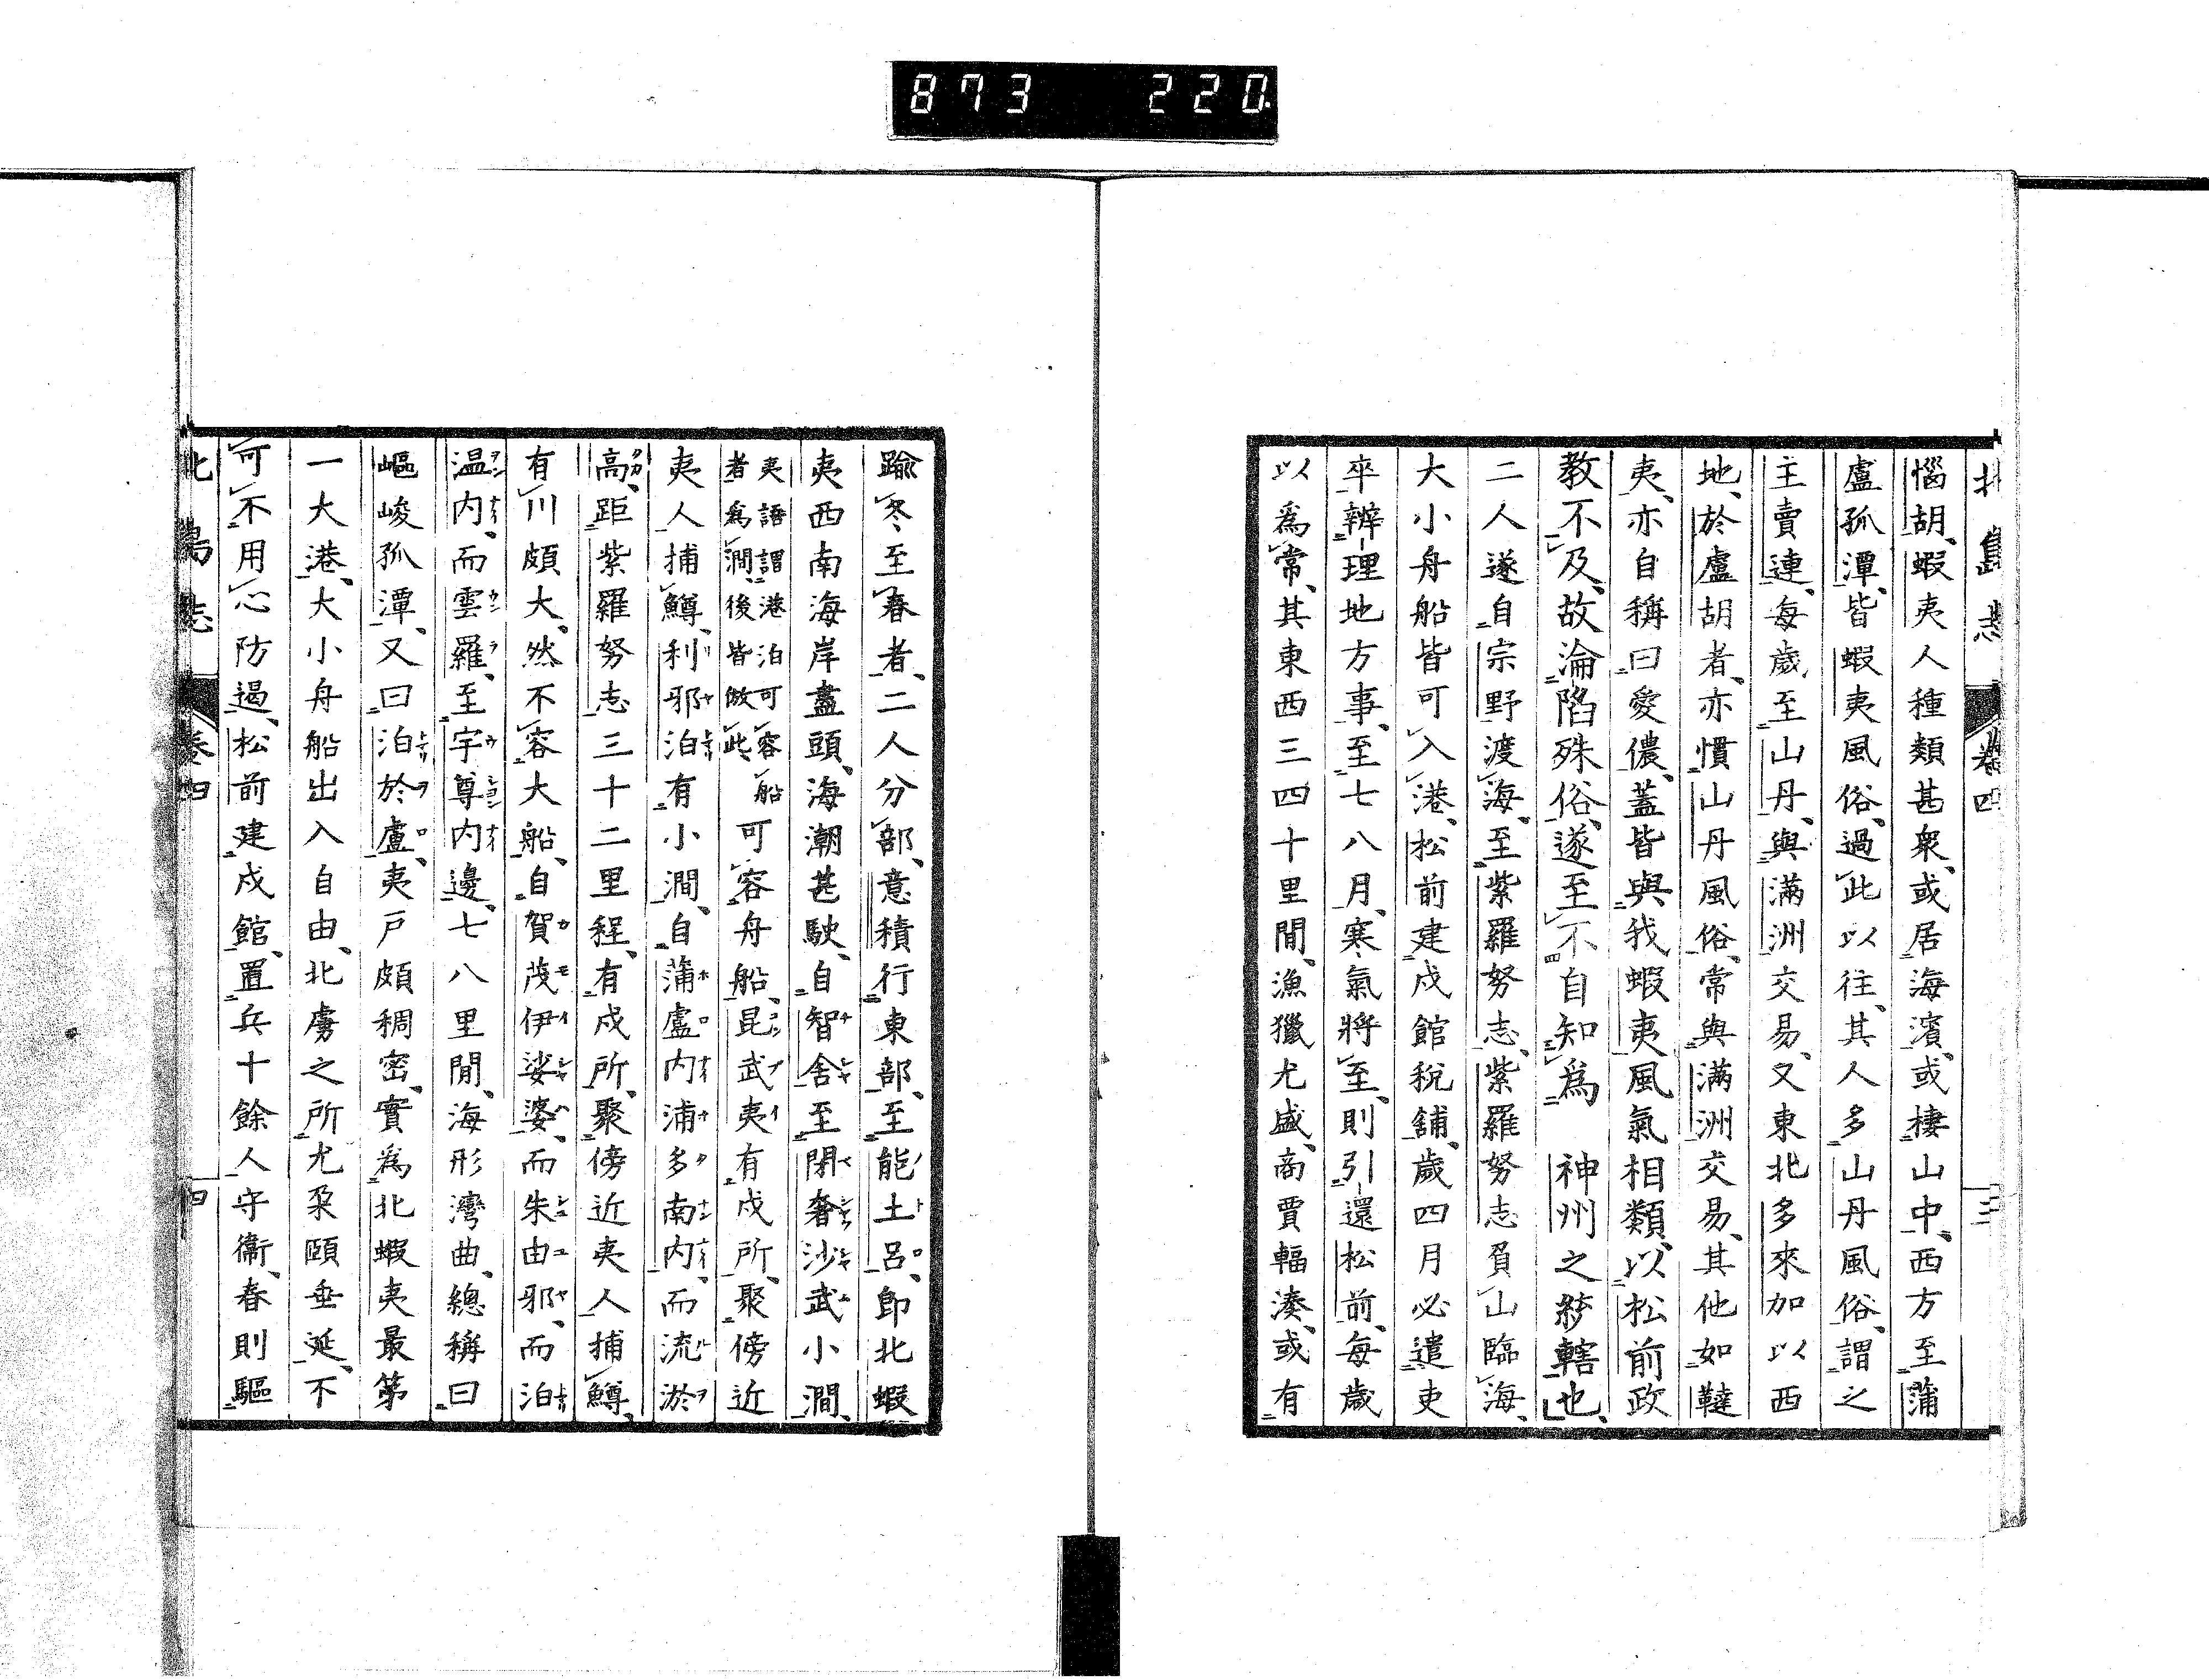 873 220
北島志 卷四 三
惱胡、蝦夷人種類甚衆、或居海濱、或棲山中、西方至蒲
盧孤潭、皆蝦夷風俗、過此以往、其人多山丹風俗、謂之
主賣連、每歲至山丹、與滿洲交易、又東北多來加以西
地、於盧胡者、亦慣山丹風俗、常與滿洲交易、其他如韃
夷、亦自稱曰愛儂、蓋皆與我蝦夷風氣相類、以松前政
教不及、故淪陷殊俗、遂至不自知爲 神州之 轄也、
二人遂自宗野渡海、至紫羅努志、紫羅努志負山臨海、
大小舟船皆可入港、松前建戍館稅舖、歲四月必遣吏
卒辨理地方事、至七八月、寒氣將至、則引還松前、每歲
以爲常、其東西三四十里間、漁獵尤盛、商賈輻湊、或有
踰冬至春者、二人分部、意積行東部、至能土呂、即北蝦
夷西南海岸盡頭、海潮甚駛、自智舍至閉奢沙武小澗、
夷語謂港泊可容船
者爲澗、後皆倣此、
可容舟船、昆武夷有戍所、聚傍近
夷人捕鱒、利邪泊有小澗、自蒲盧内浦多南内、而流淤
高、距紫羅努志三十二里程、有戍所、聚傍近夷人捕鱒、
有川頗大、然不容大船、自賀茂伊娑婆、而朱由邪、而泊
温内、而雲羅、至宇尊内邊、七八里間、海形灣曲、總稱曰
嶇峻孤潭、又曰泊於盧、夷戸頗稠密、實爲北蝦夷最第
一大港、大小舟船出入自由、北虜之所尤朶頤垂延、不
可不用心防遏、松前建戍館、置兵十餘人守衞、春則驅
北島志 卷四 四